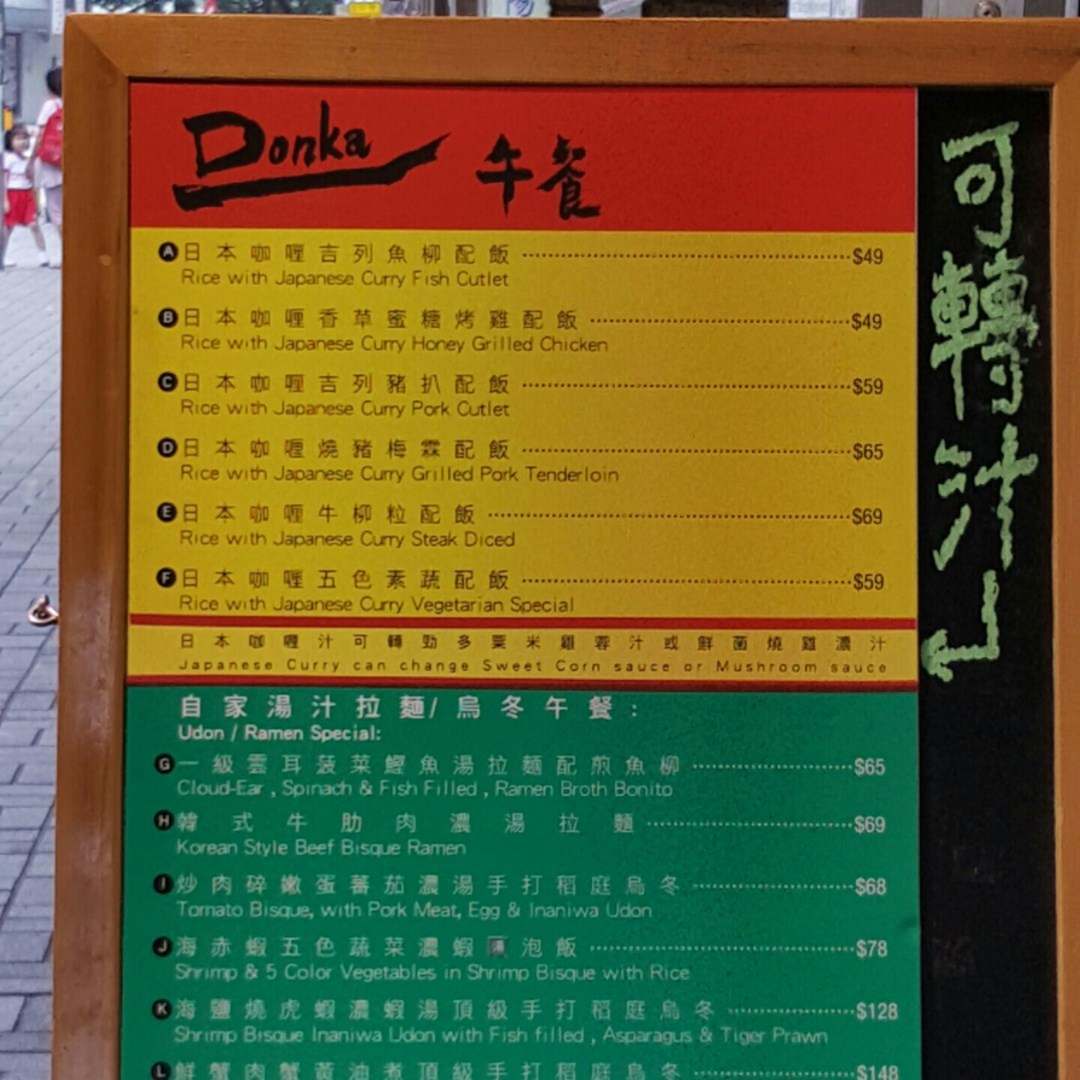 Donka 午餐
A 日本咖喱吉列魚柳配飯 $49
Rice with Japanese Curry Fish Cutlet
B 日本咖喱香草蜜糖烤雞配飯 $49
Rice with Japanese Curry Honey Grilled Chicken
C 日本咖喱吉列豬扒配飯 $59
Rice with Japanese Curry Pork Cutlet
D 日本咖喱燒豬梅霖配飯 $65
Rice with Japanese Curry Grilled Pork Tenderloin
E 日本咖喱牛柳粒配飯 $69
Rice with Japanese Curry Steak Diced
F 日本咖喱五色素蔬配飯 $59
Rice with Japanese Curry Vegetarian Special
日本咖喱汁可轉勁多粟米雞蓉汁或鮮菌燒雞濃汁
Japanese Curry can change Sweet Corn sauce or Mushroom sauce
自家湯汁拉麵/烏冬午餐:
Udon / Ramen Special:
G 一級雲耳菠菜鰹魚湯拉麵配煎魚柳 $65
Cloud-Ear , Spinach & Fish Filled , Ramen Broth Bonito
H 韓式牛肋肉濃湯拉麵 $69
Korean Style Beef Bisque Ramen
I 炒肉碎嫩蛋蕃茄濃湯手打稻庭烏冬 $68
Tomato Bisque, with Pork Meat, Egg & Inaniwa Udon
J 海赤蝦五色蔬菜濃蝦湯泡飯 $78
Shrimp & 5 Color Vegetables in Shrimp Bisque with Rice
K 海鹽燒虎蝦濃蝦湯頂級手打稻庭烏冬 $128
Shrimp Bisque Inaniwa Udon with Fish filled , Asparagus & Tiger Prawn
L 鮮蟹肉蟹黃油煮頂級手打稻庭烏冬 $148
可轉汁